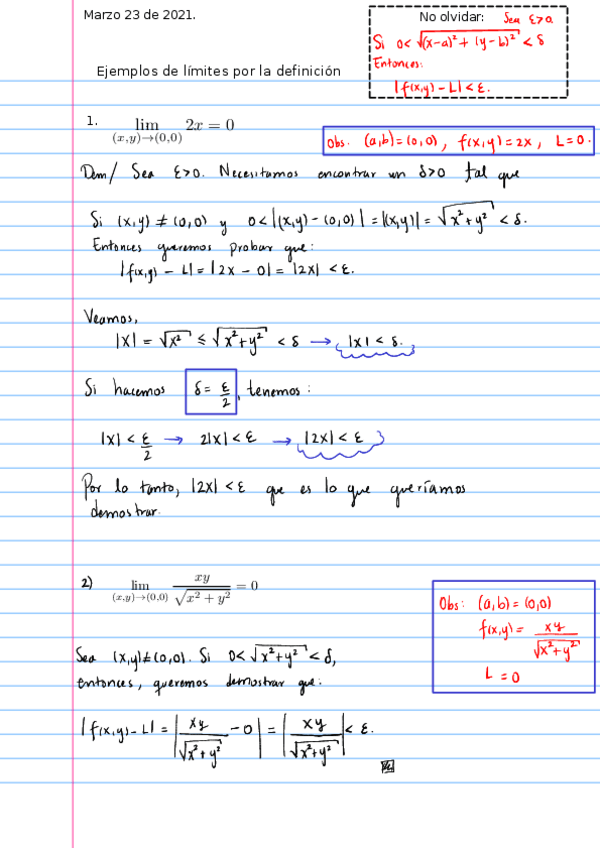 Marzo 23 de 2021.
No olvidar: Sea ε>0.
Si 0<√((x-a)²+(y-b)²) < δ
Entonces:
|f(x,y) - L| < ε.
Ejemplos de límites por la definición
1. lim (x,y)→(0,0) 2x = 0
Obs. (a,b)=(0,0), f(x,y)=2x, L=0.
Dem/ Sea ε>0. Necesitamos encontrar un δ>0 tal que
Si (x,y) ≠ (0,0) y 0<|(x,y) - (0,0)| = |(x,y)| = √(x²+y²) < δ.
Entonces queremos probar que:
|f(x,y) - L| = |2x - 0| = |2x| < ε.
Veamos,
|x| = √x² ≤ √(x²+y²) < δ → |x| < δ.
Si hacemos δ = ε/2, tenemos:
|x| < ε/2 → 2|x| < ε → |2x| < ε
Por lo tanto, |2x| < ε que es lo que queríamos
demostrar.
2) lim (x,y)→(0,0) xy/√(x²+y²) = 0
Obs: (a,b) = (0,0)
f(x,y) = xy/√(x²+y²)
L = 0
Sea (x,y)≠(0,0). Si 0<√(x²+y²) < δ,
entonces, queremos demostrar que:
|f(x,y) - L| = |xy/√(x²+y²) - 0| = |xy/√(x²+y²)| < ε.